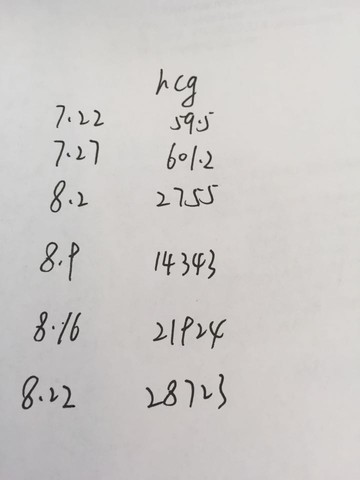 hcg
7.22 59.5
7.27 601.2
8.2 2755
8.9 14343
8.16 21924
8.22 28723